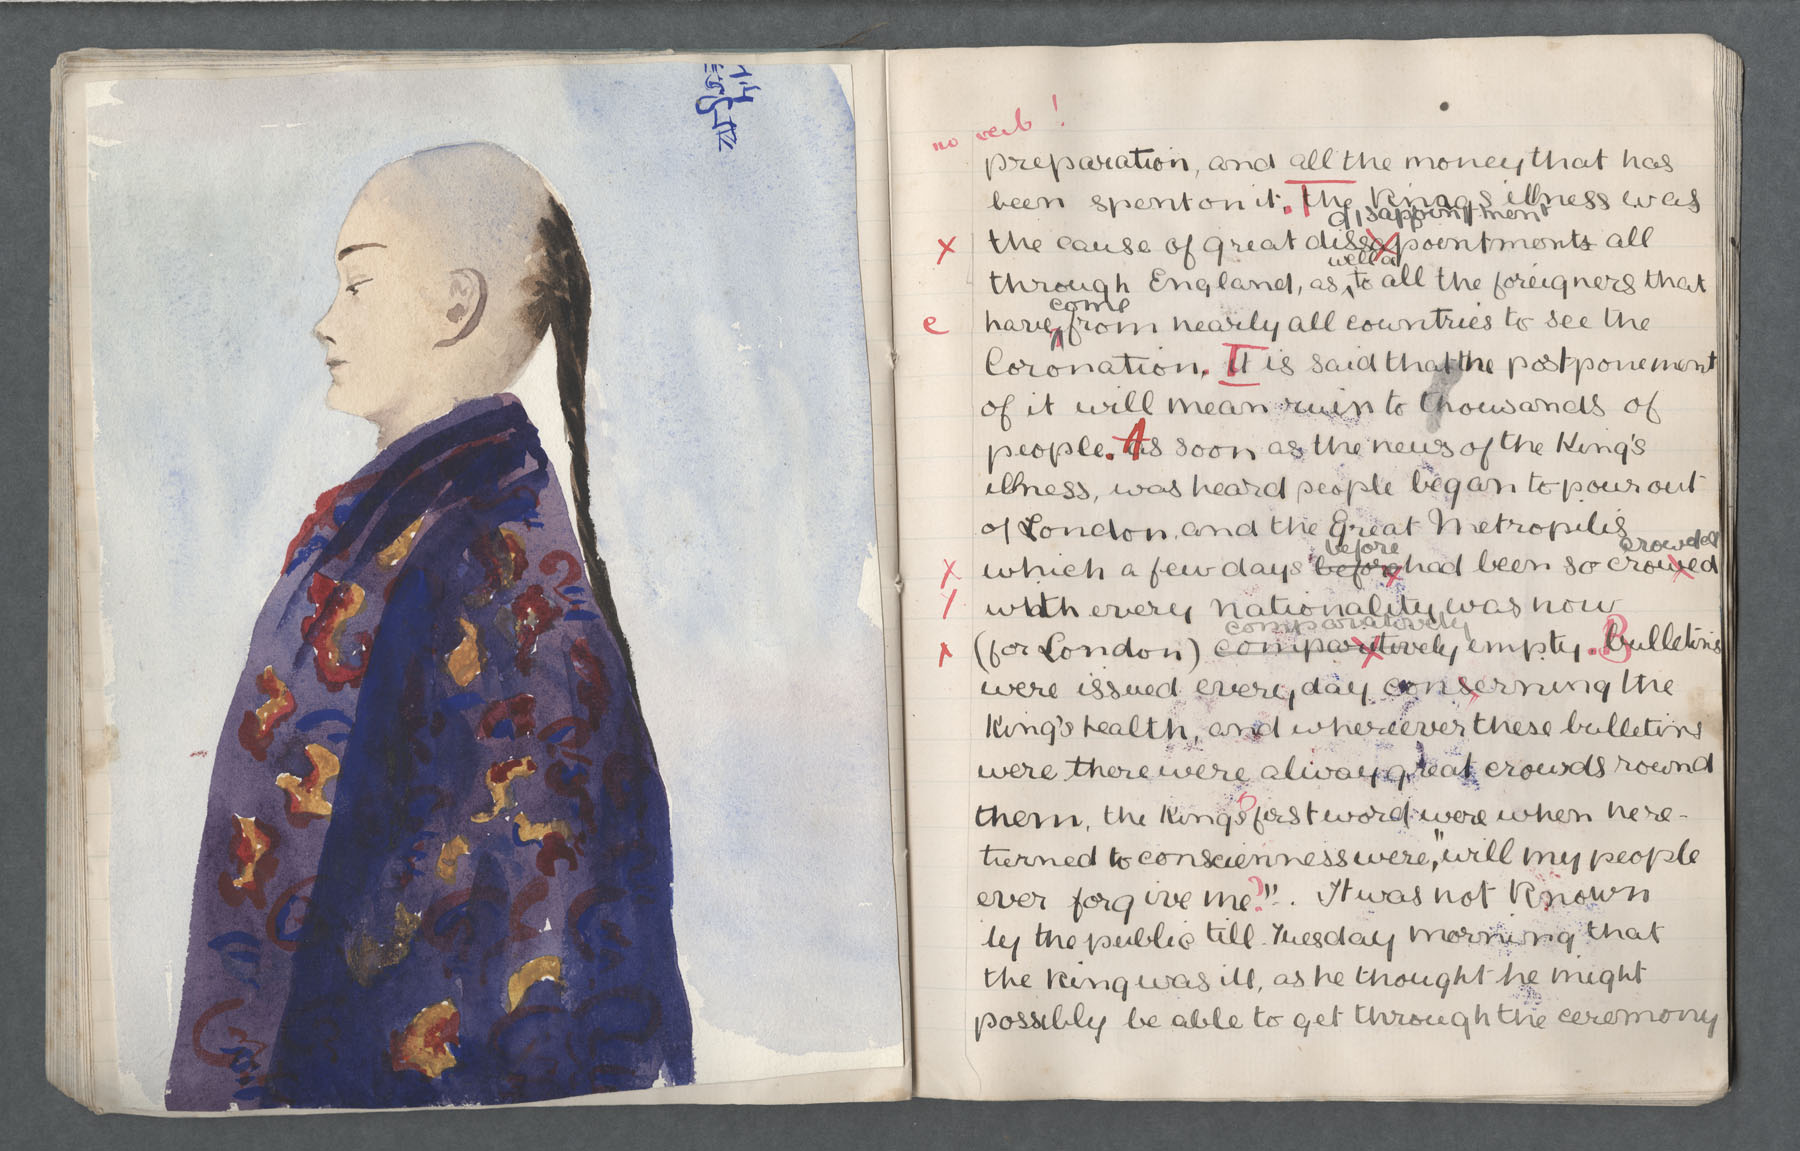 no verb!
preparation, and all the money that has
been spent on it. The King's illness was
disappointment
x the cause of great dissapointments all
well as
through England, as to all the foreigners that
come
e have from nearly all countries to see the
Coronation. It is said that the postponement
of it will mean ruin to thousands of
people. As soon as the news of the King's
illness, was heard people began to pour out
of London, and the Great Metropilis
before crowded
x which a few days before had been so crowed
/ with every nationality, was now
comparatively
x (for London) comparitively empty. Bulletins
were issued every day conserning the
King's health, and whereever these bulletins
were there were alway great crowds round
them, the King's first word were when here-
turned to conscienness were, "will my people
ever forgive me?". It was not known
by the public till Tuesday morning that
the King was ill, as he thought he might
possibly be able to get through the ceremony